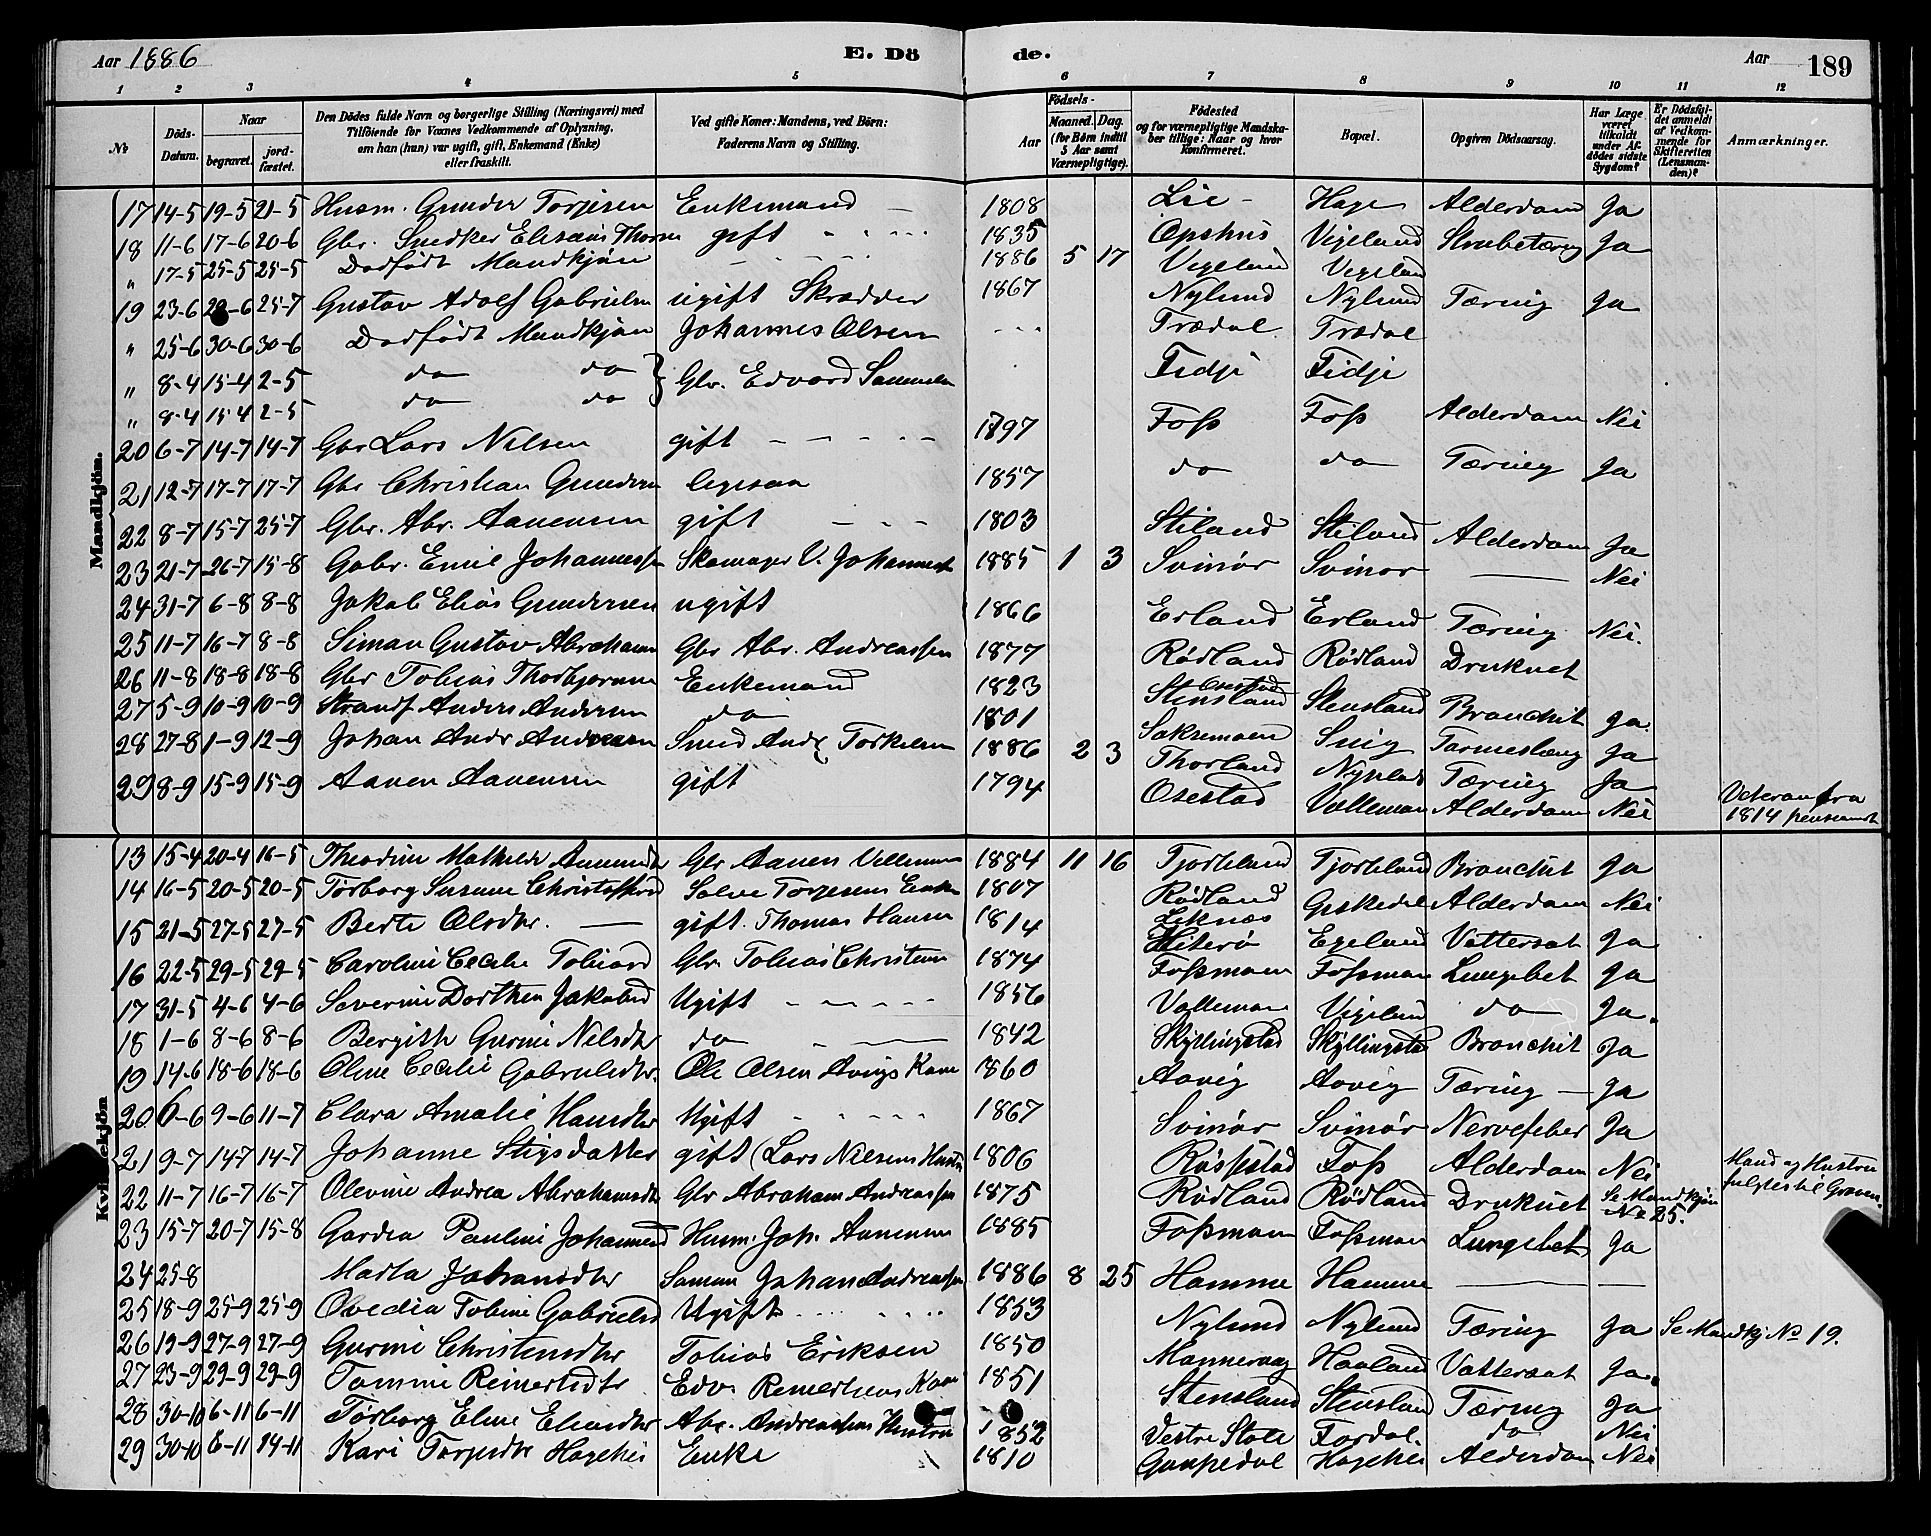 Aar 1886 E. Dö de. Aar 189
1 2 3 4 5 6 7 8 9 10 11 12
No
Döds-Datum.
Naar
begravet.
jord-fæstet.
Den Dödes fulde Navn og borgerlige Stilling (Næringsvei) med
Tilföiende for Voxnes Vedkommende af Oplysning,
om han (hun) var ugift, gift, Enkemand (Enke)
eller fraskilt.
Ved gifte Koner: Mandens, ved Börn:
Faderens Navn og Stilling.
Födsels-
Aar
Maaned. Dag.
(for Börn indtil
5 Aar samt
Værnepligtige).
Födested
og for værnepligtige Mandska-
ber tillige: Naar og hvor
Konfirmeret.
Bopæl.
Opgiven Dödsaarsag.
Har Læge
været
tilkaldt
under Af-
dödes sidste
Sygdom?
Er Dödsfal-
det anmeldt
af Vedkom-
mende for
Skifteretten
(Lensman-
den)?
Anmærkninger.
Mandkjön.
17 14-5 19-5 21-5 Husm. Gunder Torjesen Enkemand 1808 Lie Hage Alderdom Ja
18 11-6 17-6 20-6 Gbr. Snedker Elisæus gift 1835 Opshus Vigeland Strubetæring Ja
" 17-5 25-5 25-5 Dødfødt Mandkjøn 1886 5 17 Vigeland Vigeland
19 23-6 28-6 25-7 Gustav Adolf Gabrielsen ugift Skrædder 1867 Nylund Nylund Tæring Ja
" 25-6 30-6 30-6 Dødfødt Mandkjøn Johannes Olsen Trædal Trædal
" 8-4 15-4 2-5 do do } Gbr. Edvard Samuelsen Fidje Fidje
" 8-4 15-4 2-5 do do
20 6-7 14-7 14-7 Gbr Lars Nilsen gift 1797 Foss Foss Alderdom Nei
21 12-7 17-7 17-7 Gbr Christian Gundersen ligesaa 1857 do do Tæring Ja
22 8-7 15-7 25-7 Gbr. Abr. Aanensen gift 1803 Stiland Stiland Alderdom Ja
23 21-7 26-7 15-8 Gabr. Emil Johannessen Skomager V. Johannessen 1885 1 3 Svinør Svinør — Nei
24 31-7 6-8 8-8 Jakob Elias Gundersen ugift 1866 Erland Erland Tæring Nei.
25 11-7 16-7 8-8 Simon Gustav Abrahamsen Gbr Abr. Andreassen 1877 Rødland Rødland Druknet
26 11-8 18-8 18-8 Gbr Tobias Thorbjørnsen Enkemand 1823 Stensland Stensland Bronchit Ja.
27 5-9 10-9 10-9 Strandf Anders Andersen do 1801 Saksemoen Snig Ja
28 27-8 1-9 12-9 Johan Andr Andreasen Smed Andr Torkelsen 1886 2 3 Thorland Tæring Ja
29 8-9 15-9 15-9 Aanen Aanensen gift 1794 Osestad Valleman Alderdom Nei Veteran fra
1814 pensioneret
Kvindekjön
13 15-4 20-4 16-5 Theodine Mathilde Gbr Aanen 1884 11 16 Tjorteland Tjorteland Bronchit Ja
14 16-5 20-5 20-5 Torborg Susanne Christoffersd Salve Torjesens Enke 1807 Rødland Alderdom Nei
15 21-5 27-5 27-5 Berte Olsdtr. gift. Thomas Hansen 1814 Hiterø Egeland Vattersot Ja
16 22-5 29-5 29-5 Caroline Cecilie Tobiasd Gbr Tobias Christensen 1874 Fossmoen Fossmoen Lungebet Ja
17 31-5 4-6 4-6 Severine Dorthea Jakobsd Ugift 1856 Valleman Vigeland do Ja.
18 1-6 8-6 8-6 Bergith Gurine Nilsdtr do 1842 Skyllingstad Skyllingstad Bronchit Ja
19 14-6 18-6 18-6 Oline Cecilie Gabrielsdtr. Ole Olsen Aavigs Kone 1860 Aavig Aavig Tæring Ja
20 6-6 9-6 11-7 Clara Amalie Hansdtr Ugift 1867 Svinør Svinør Nervefeber Ja
21 9-7 14-7 14-7 Johanne Stigsdatter gift (Lars Nilsens Hustru 1806 Røssestad Foss Alderdom Nei Mand og Hustru
fulgtes til Graven.
22 11-7 16-7 16-7 Olevine Andrea Abrahamsdtr Gbr Abraham Andreassen 1875 Rødland Rødland Druknet Se Mandkjøn
No 25.
23 15-7 20-7 15-8 Gardea Pauline Johannesd Husm. Joh. Aanensen 1885 Fossmoen Fossmoen Lungebet Ja
24 25-8 Marta Johansdtr Sømm Johan Andreassen 1886 8 25 Homme Homme — —
25 18-9 25-9 25-9 Ovedia Tobine Gabrielsd Ugift 1853 Nylund Nylund Tæring Ja Se Mandkj No 19.
26 19-9 27-9 27-9 Gurine Christensdtr Tobias Eriksen 1850 Mannevaag Haaland Vattersot Ja.
27 23-9 29-9 29-9 Tomine Reinertsdtr Edv. Reinertsens Kone 1851 Stensland Stensland Tæring Ja
28 30-10 6-11 6-11 Torborg Eline Eliasdtr Abr. Andreassens Hustru 1852 Vestre Fardal. do Nei
29 30-10 6-11 14-11 Kari Torjesdtr Enke 1810 Alderdom Nei